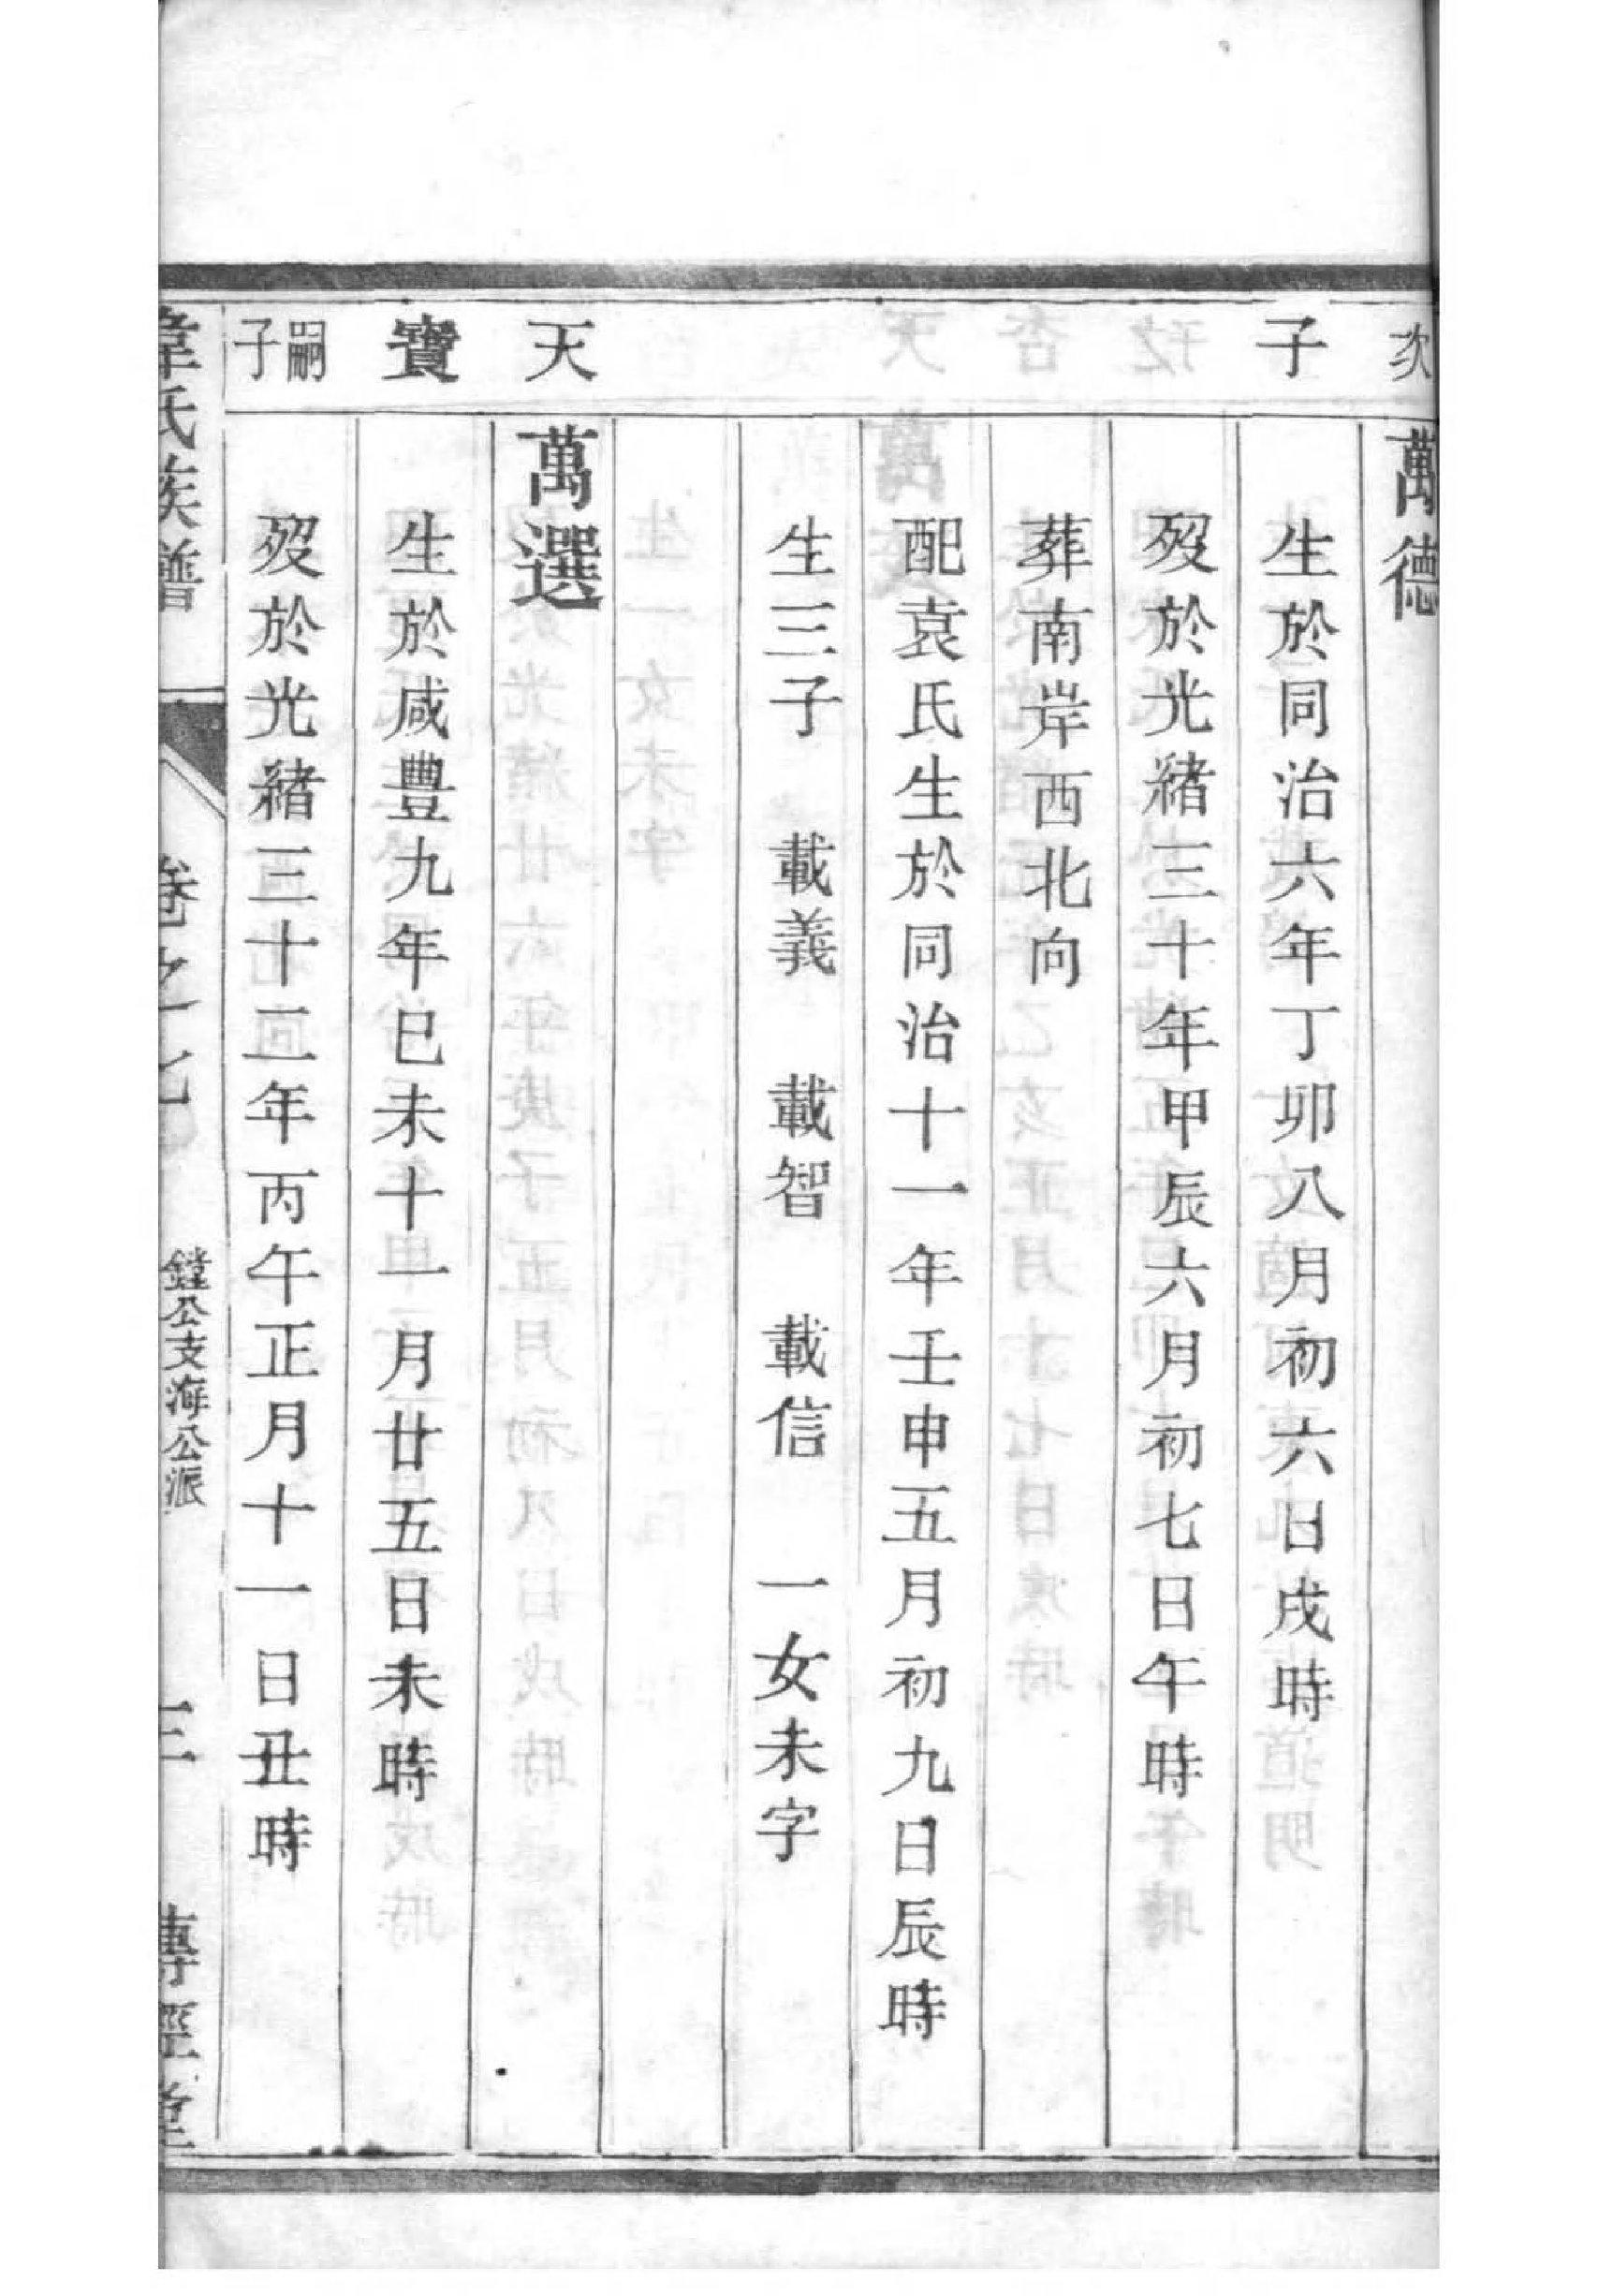 次
萬德
子
生於同治六年丁卯八月初六日戌時
歿於光緒三十年甲辰六月初七日午時
葬南岸西北向
配袁氏生於同治十一年壬申五月初九日辰時
生三子 載義 載智 載信 一女未字
天
萬選
寶
生於咸豊九年已未十一月廿五日未時
嗣子
歿於光緒三十二年丙午正月十一日丑時
韋氏族譜 卷之七 鏜公支海公派 三 傳經堂